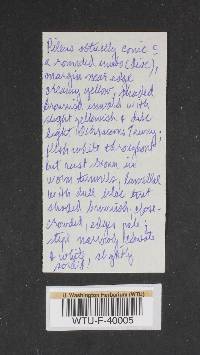 Pileus obtusely conic c
a rounded umbo (disc),
margin near edge
creamy yellow, shaded
brownish inwards with
slight yellowish & disc
light
flesh white throughout
but rust brown in
worm tunnels, lamellae
with dull lilac tint
shaded brownish, close-
crowded, edges pale;
stipe narrowly
& white, slightly
U. Washington Herbarium (WTU)
WTU-F-40005